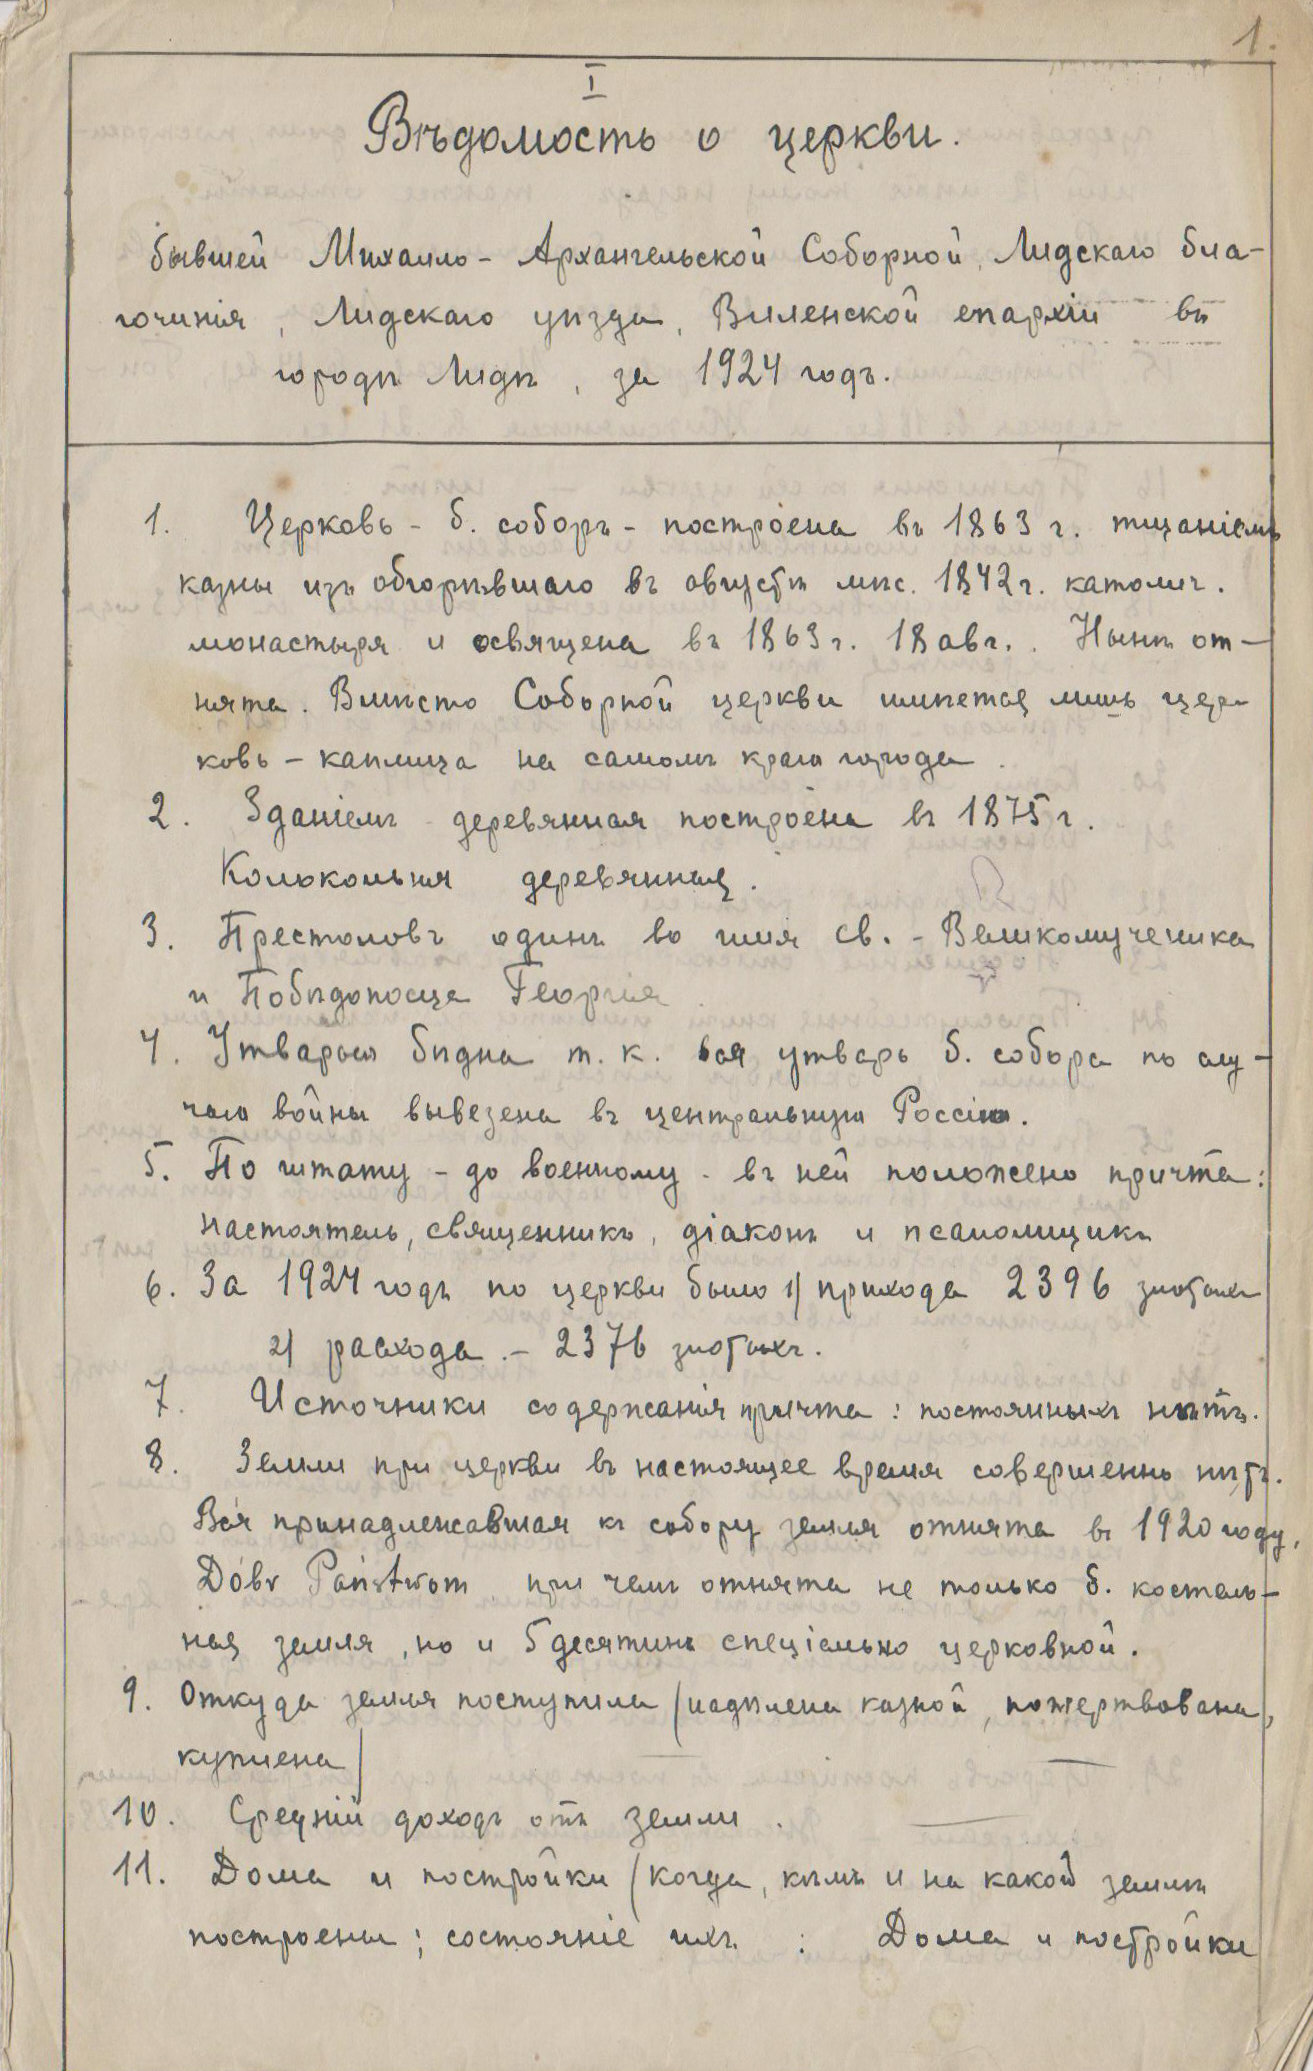 1.
I
Вѣдомость о церкви.
бывшей Михаило-Архангельской Соборной, Лидскаго бла-
гочинія, Лидскаго уѣзда, Виленской епархіи въ
городѣ Лидѣ, за 1924 годъ.
1. Церковь - б. соборъ - построена въ 1863 г. тщаніемъ
казны изъ обгорѣвшаго въ августѣ мѣс. 1842 г. католич.
монастыря и освящена въ 1863 г. 18 авг.. Нынѣ от-
нята. Вмѣсто Соборной церкви имѣется лишь цер-
ковь - каплица на самомъ краю города.
2. Зданіемъ деревянная построена въ 1875 г.
Колокольня деревянная.
3. Престоловъ одинъ во имя св. - Великомученика
и Побѣдоносца Георгія.
4. Утварью бѣдна т. к. вся утварь б. собора по слу-
чаю войны вывезена въ центральную Россію.
5. По штату - до военному - въ ней положено причта:
настоятель, священникъ, діаконъ и псаломщикъ
6. За 1924 годъ по церкви было 1) прихода 2396 злотыхъ
2) расхода. - 2376 злотыхъ.
7. Источники содержанія причта: постоянныхъ нѣтъ.
8. Земли при церкви въ настоящее время совершенно нѣтъ.
Вся принадлежавшая къ собору земля отнята въ 1920 году,
Dóbr Państwom при чемъ отнята не только б. костель-
ная земля, но и 5 десятинъ спеціально церковной.
9. Откуда земля поступила (надѣлена казной, пожертвована,
куплена) — —
10. Средній доходъ отъ земли. —
11. Дома и постройки (когда, кѣмъ и на какой землѣ
построены; состояніе ихъ : Дома и постройки